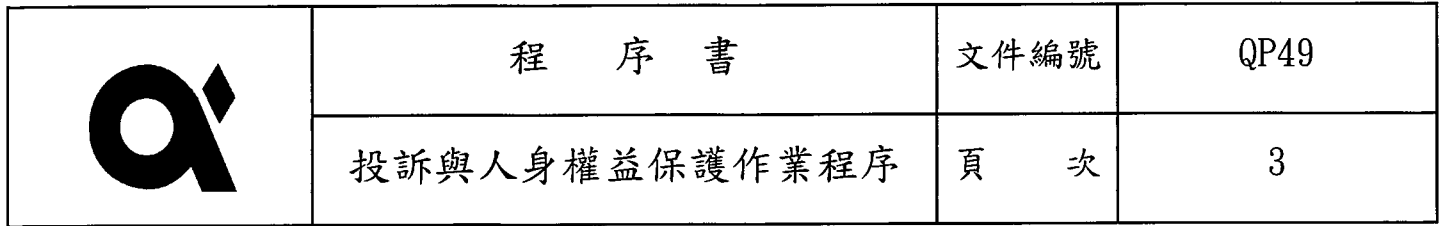 程 序 書 文件編號 QP49
投訴與人身權益保護作業程序 頁 次 3